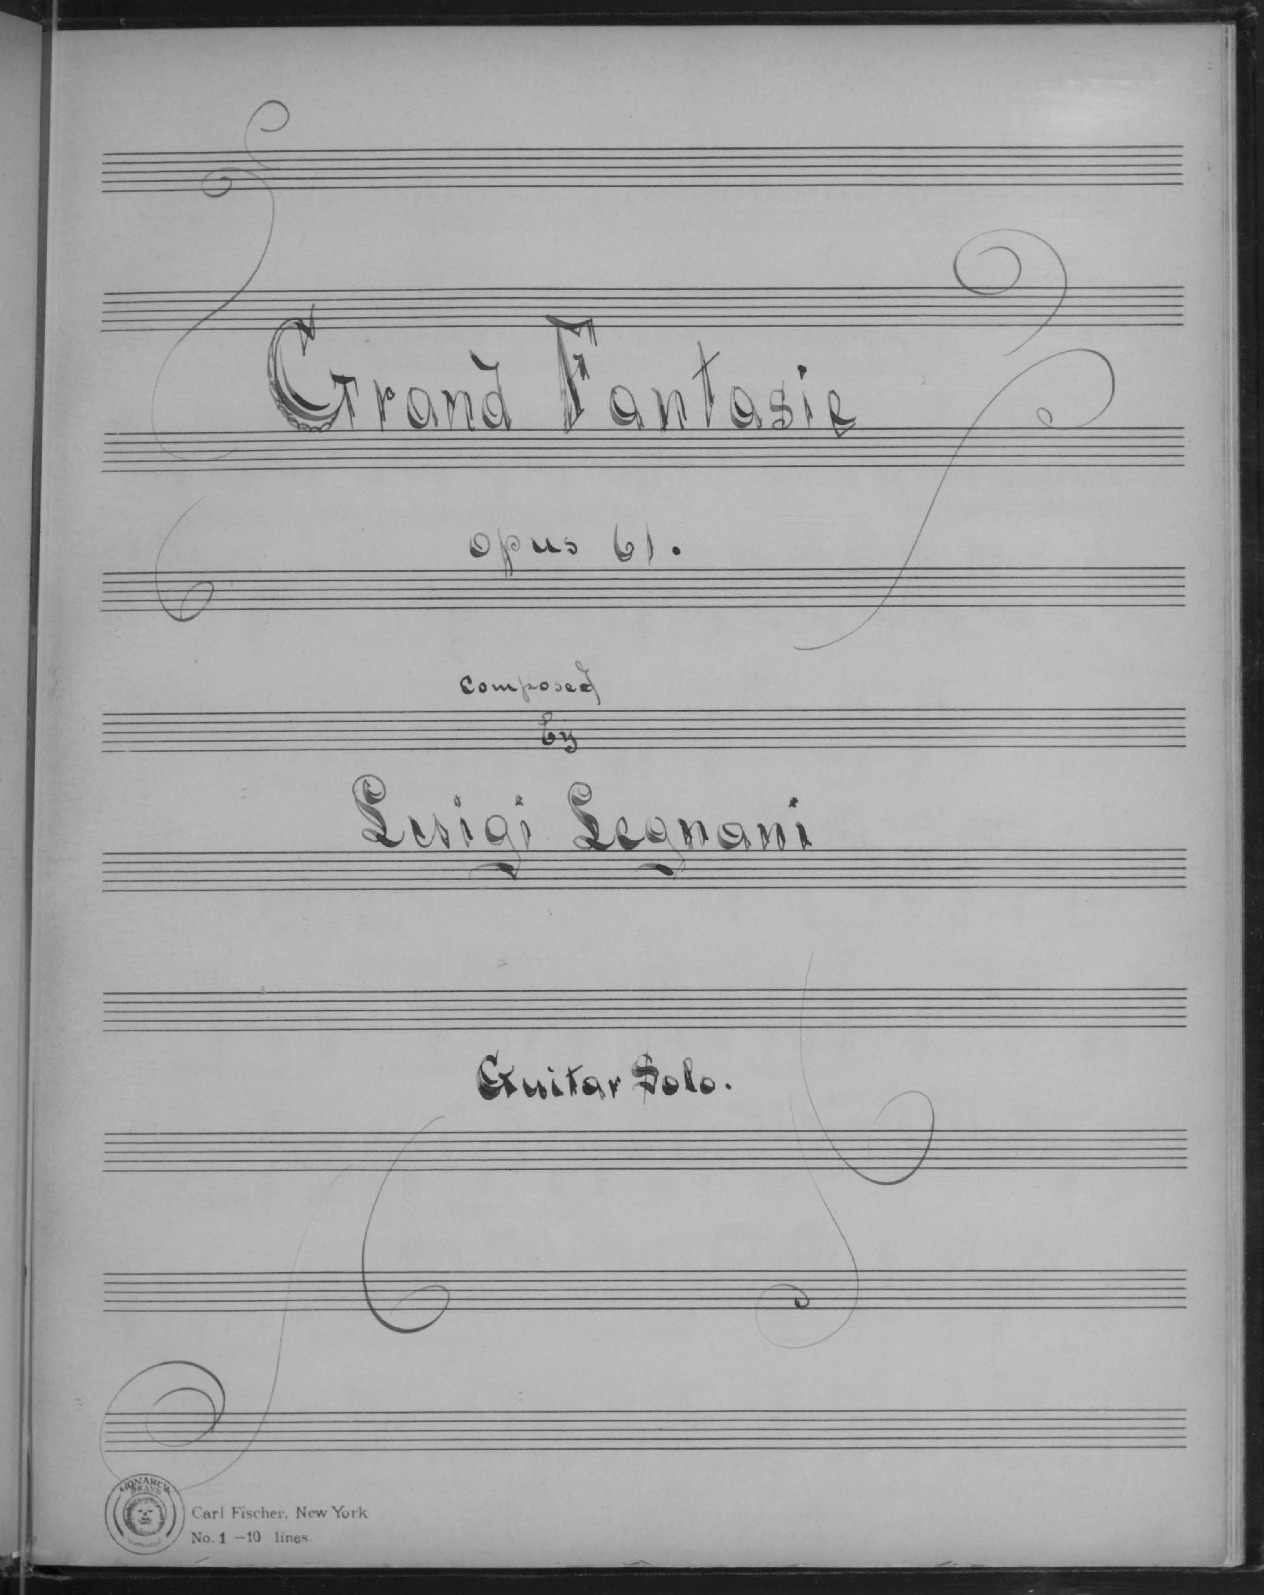 Grand Fantasie
opus 61.
composed
by
Luigi Legnani
Guitar Solo.
MONARCH
BRAND
Carl Fischer, New York
No. 1 – 10 lines